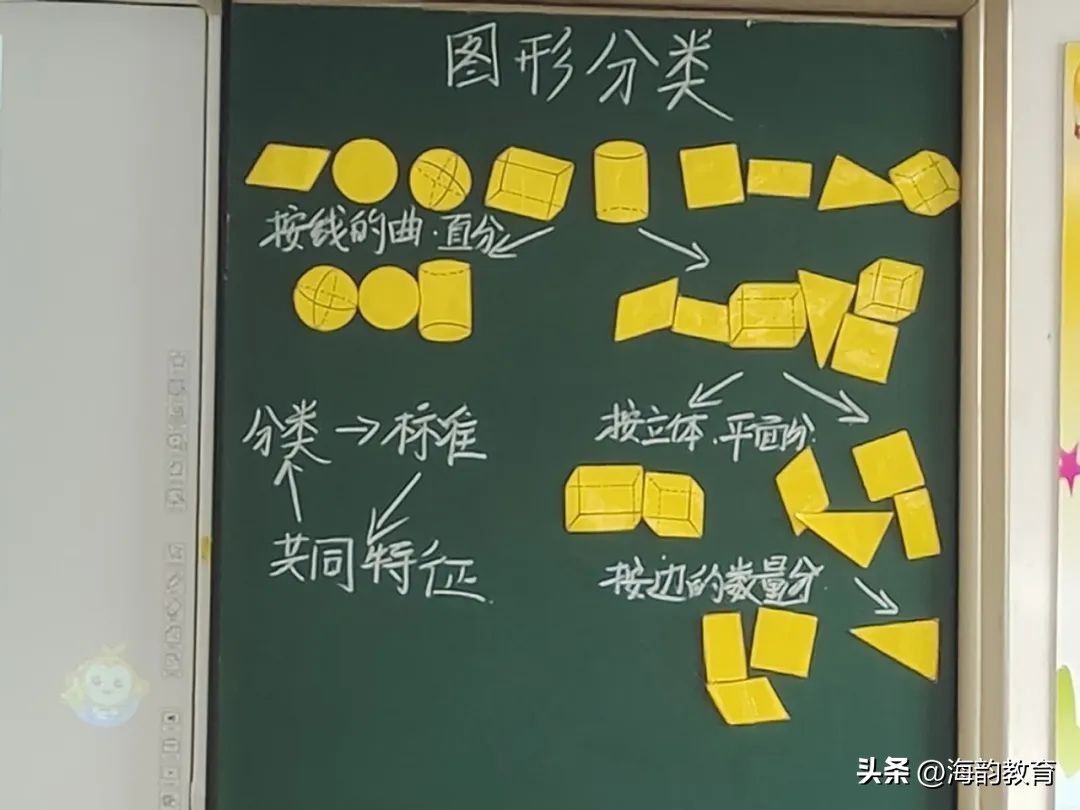 图形分类
按线的曲·直分
分类→标准
共同特征
按立体、平面分
按边的数量分
头条 @海韵教育